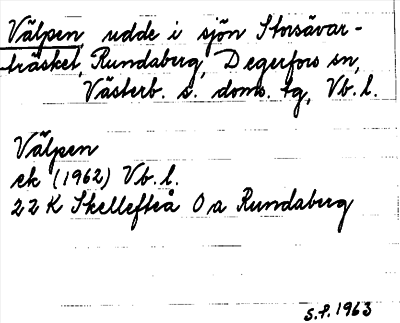 Välpen, udde i sjön Storsävar-
träsket, Rundaberg, Degerfors sn,
Västerb. s. doms. tg, Vb. l.
Välpen
ek (1962) Vb. l.
22 K Skellefteå 0 a Rundaberg
S.P. 1963